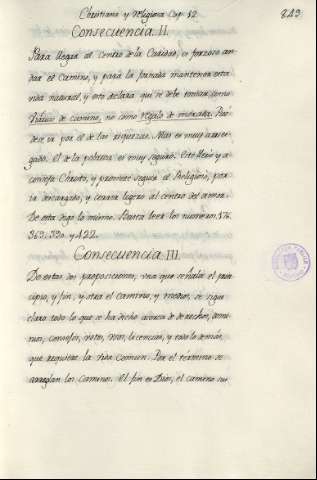 Christiana y Religiosa Cap. 12 843
Consecuencia II.
Para llegar al Centro de la Caridad, es forzoso an-
dar el Camino, y para la jornada mantener esta
vida natural, y esto declara que se debe tomar como
Viático de camino, no como Regalo de morada. Pu-
dese ir por el de las riquezas. Mas es muy arries-
gado. El de la pobreza es muy seguro. Este llevó y a-
conseja Christo, y promete seguir el Religioso, para
ir descargado, y correr ligero al centro del amor.
De esta digo lo mismo. Basta leer los numeros 176.
363. 390. y 422.
Consecuencia III.
De estas dos proposiciones, una que señala el prin-
cipio, y fin, y otra el camino, y medios, se sigue
claro todo lo que se ha dicho acerca de derechos, domi-
nios, consejos, votos, usos, licencias, y todo lo demás,
que requiere la vida Comun. Por el término se
arreglan los Caminos. El fin es Dios, el camino su